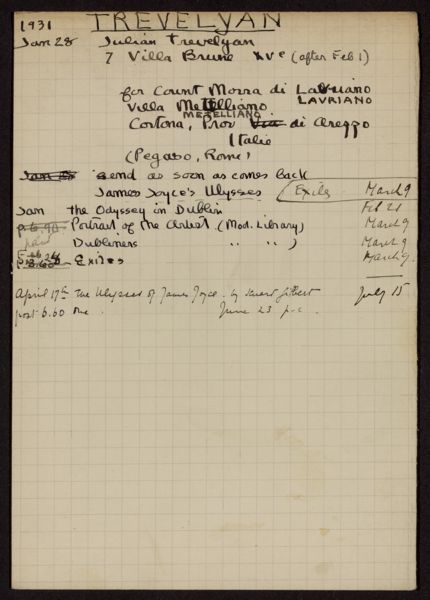 1931 TREVELYAN
Jan 28 Julian Trevelyan
7 Villa Brune XVe (after Feb 1)
for Count Morra di Lavriano
LAVRIANO
Villa Metelliano
METELLIANO
Cortona, Prov Via di Arezzo
Italie
(Pegaso, Rome)
Jan send as soon as comes back
James Joyce's Ulysses (Exiles March 9
Jan the Odyssey in Dublin Feb 21
p. 6.90 Portrait of the Artist (Mod. Library) March 9
paid Dubliners " " ) March 9
Exiles March 9
April 17th The Ulysses of James Joyce. by Stuart Gilbert July 15
post 6.60 June 23 p.c.